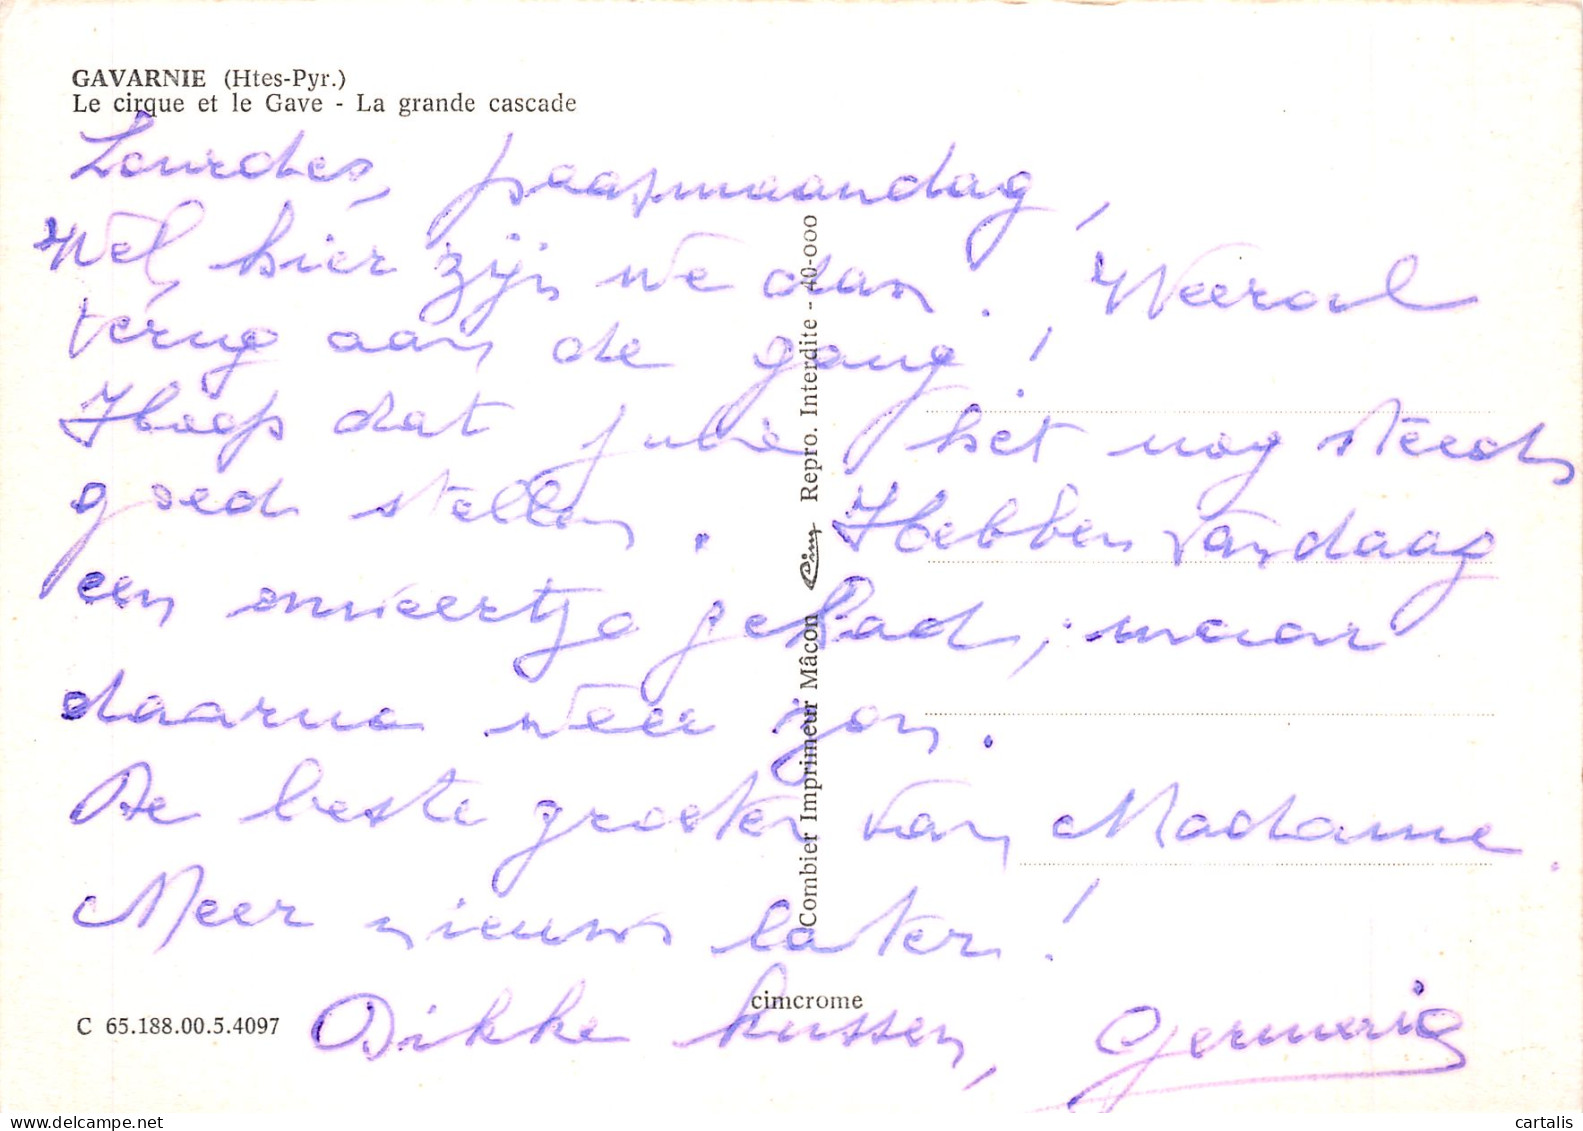 GAVARNIE (Htes-Pyr.)
Le cirque et le Gave - La grande cascade
Lourdes, paasmaandag,
Wel, hier zijn we dan. Weeral
terug aan de gang!
Hoop dat jullie het nog steeds
goed stellen. Hebben vandaag
een onweertje gehad, maar
daarna weer zon.
De beste groeten van Madame.
Meer nieuws later!
Dikke kussen,
C 65.188.00.5.4097
cimcrome
Combier Imprimeur Mâcon Cim Repro. Interdite - 40-000
cartalis